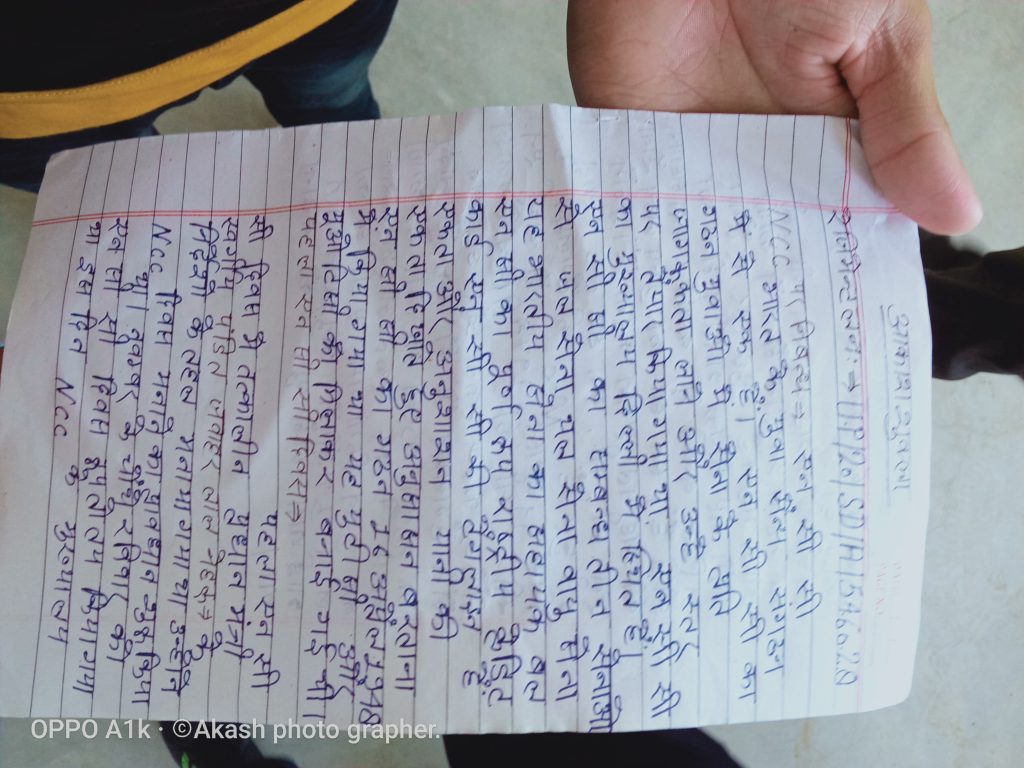 आकाश शुक्ला
रजिमेन्टल नं० → UP20/SD/A/154620
NCC पर निबन्ध → एन सी सी
NCC भारत के युवा सैन्य संगठन
मे से एक है। एन सी सी का
गठन युवाओ मे सेना के प्रति
जागरूकता लाने और उन्हे स्तर
पर तैयार किया गया था एन सी सी
का मुख्यालय दिल्ली मे स्थित है।
एन सी सी का सम्बन्ध तीन सेनाओ
से जल सेना थल सेना वायु सेना
यह भारतीय सेना का सहायक बल
एन सी सी का पूर्ण रूप राष्ट्रीय कैडिट
कोर एन सी सी की टैगलाइन है
एकता और अनुशासन
एकता निशान हुए अनुशासन बरताना
एन सी सी का गठन 16 अप्रैल 1948
मे किया गया था यह यूटीसी और
यूओटीसी को मिलाकर बनाई गई थी
पहला एन सी सी दिवस →
पहला एन सी
सी दिवस मे तत्कालीन प्रधान मन्त्री
स्वर्गीय पंडित जवाहर लाल नेहरू के
निर्देशो के तहत मनाया गया था उन्होने
NCC दिवस मनाने का प्रावधान शुरू किया
था। नवम्बर के चौथे रविवार को
एन सी सी दिवस सेलीब्रेट किया गया
था इस दिन NCC के मुख्यालय